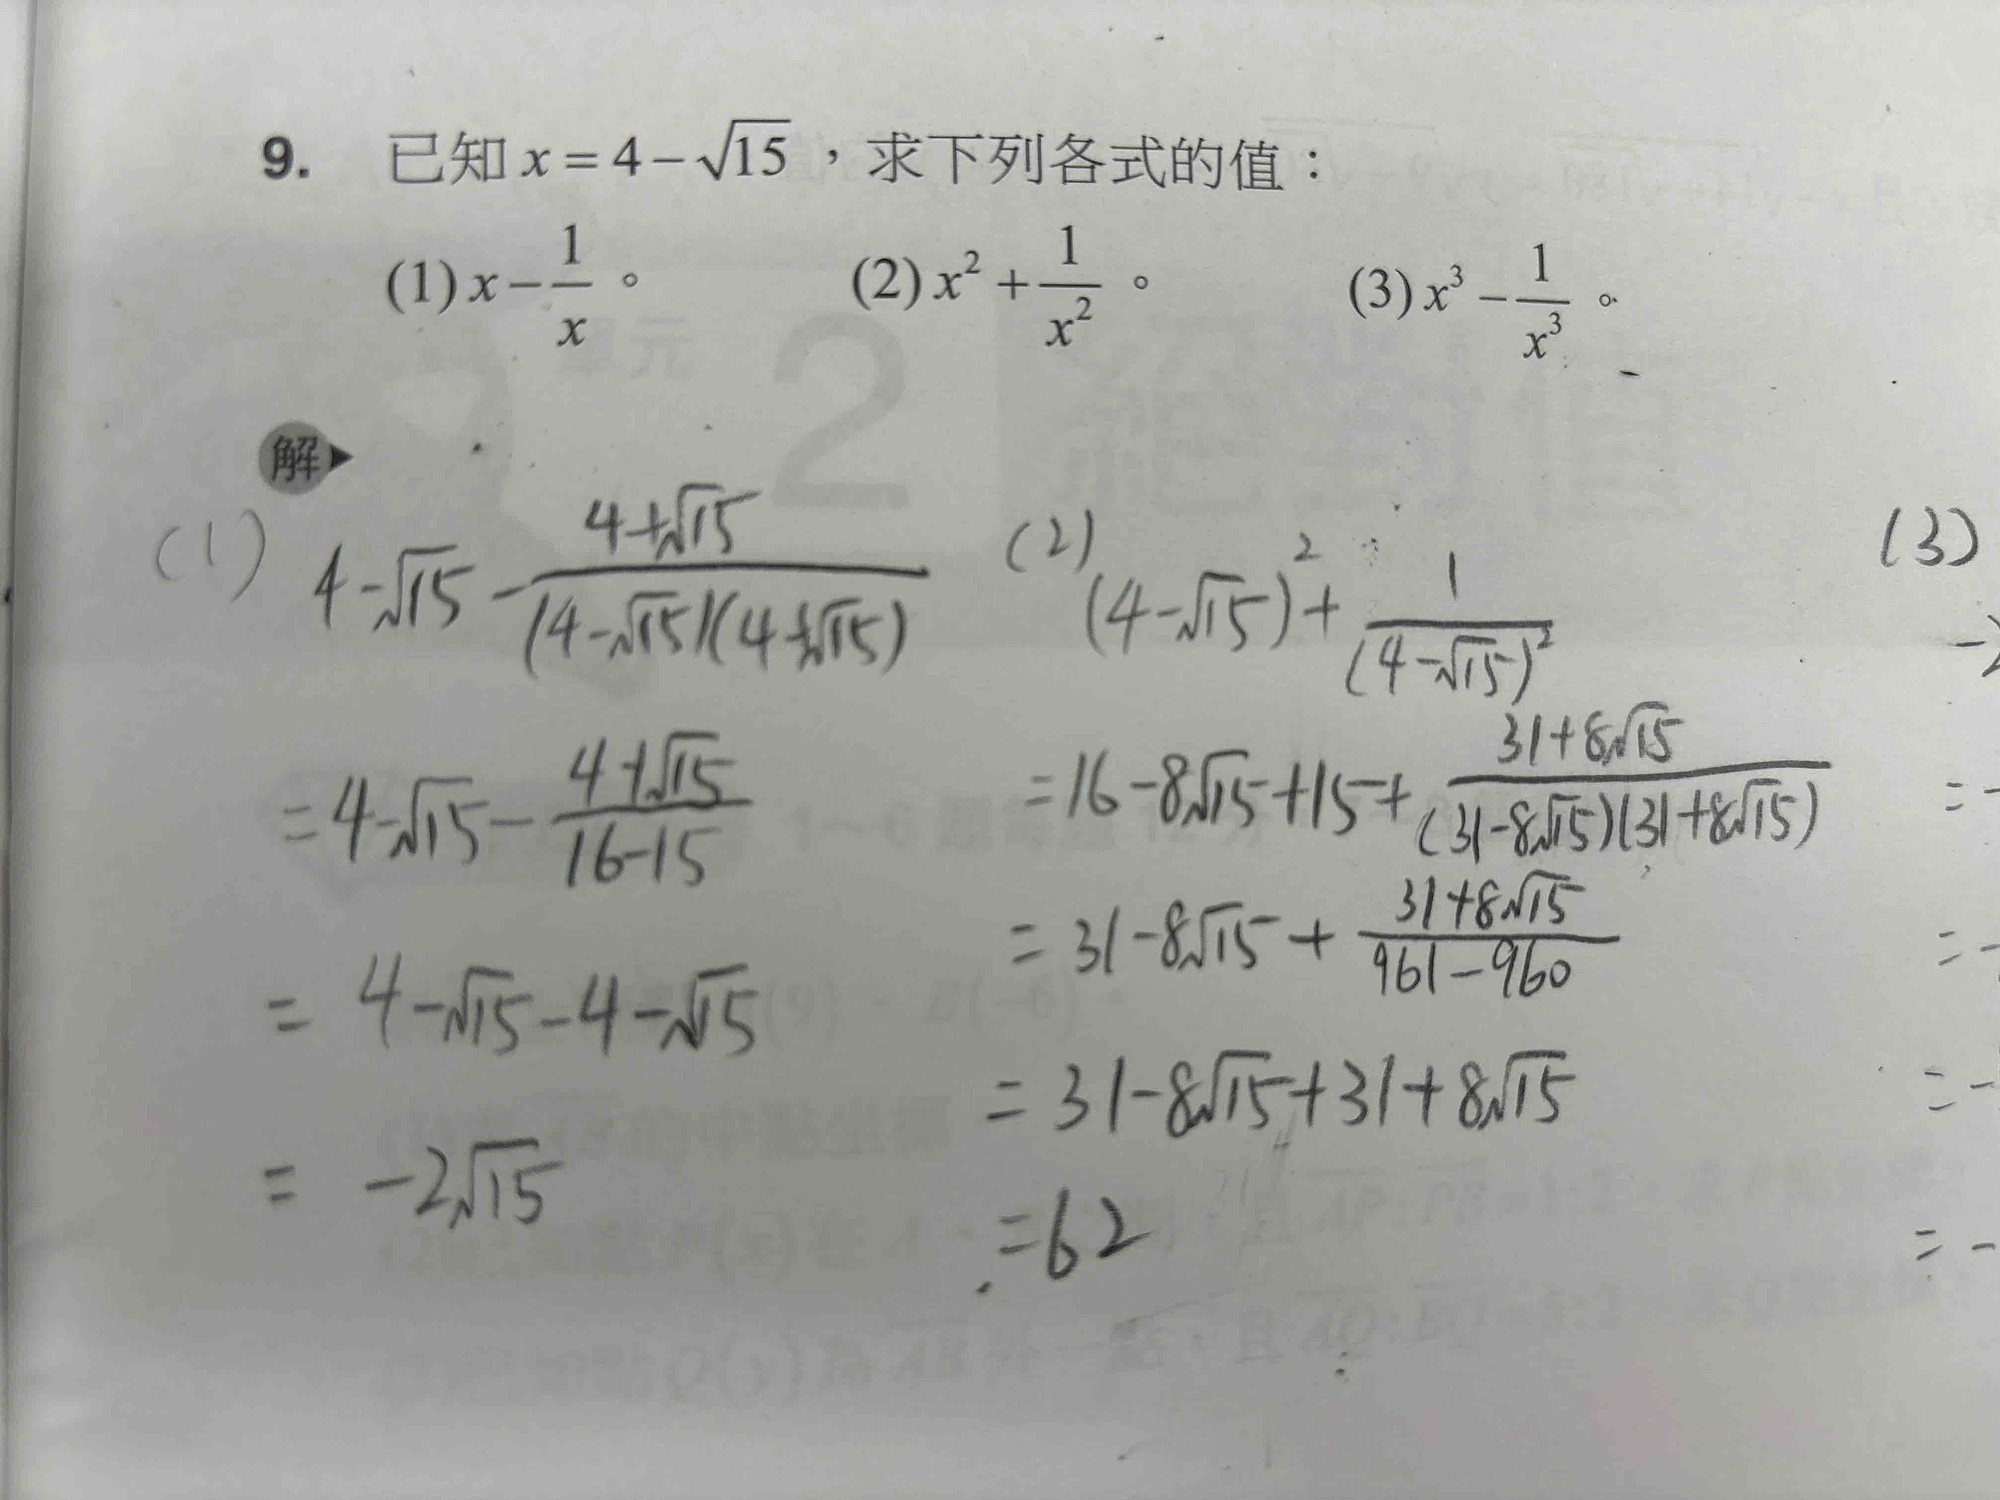 9. 已知 x = 4 − √15，求下列各式的值：
(1) x − 1/x。 (2) x² + 1/x²。 (3) x³ − 1/x³。
解
(1) 4 − √15 − (4 + √15)/((4 − √15)(4 + √15))
= 4 − √15 − (4 + √15)/(16 − 15)
= 4 − √15 − 4 − √15
= −2√15
(2) (4 − √15)² + 1/(4 − √15)²
= 16 − 8√15 + 15 + (31 + 8√15)/((31 − 8√15)(31 + 8√15))
= 31 − 8√15 + (31 + 8√15)/(961 − 960)
= 31 − 8√15 + 31 + 8√15
= 62
(3)
= −
= −
= −
= −